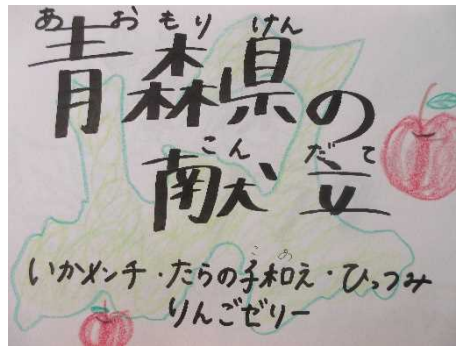 あおもりけん
青森県の
こんだて
献立
いかメンチ・たらの子和え・ひっつみ
りんごゼリー